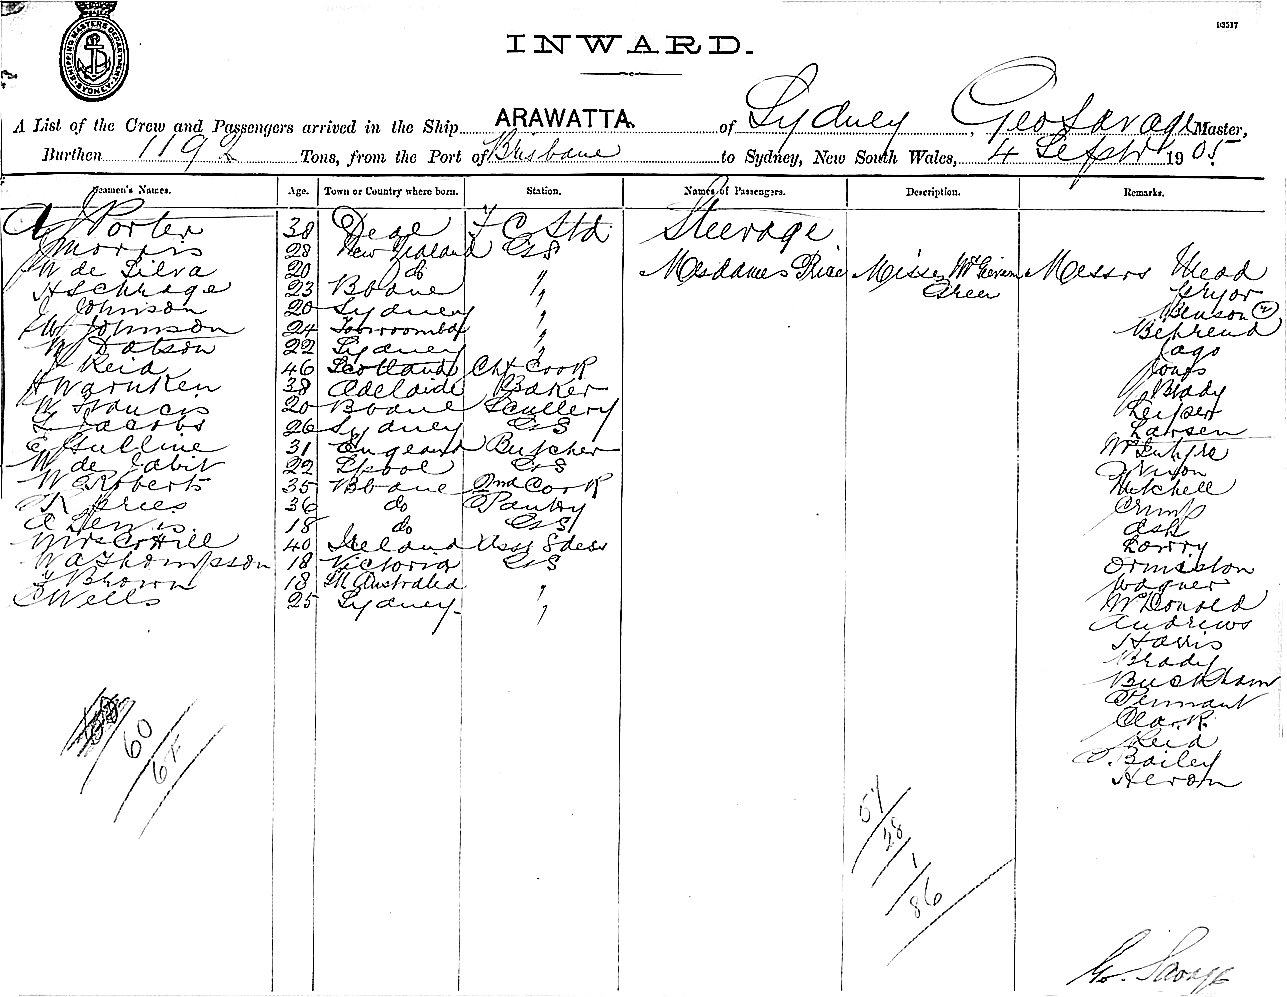 SHIPPING MASTERS DEPARTMENT SYDNEY
13517
INWARD.
A List of the Crew and Passengers arrived in the Ship ARAWATTA of Sydney, Geo Savage Master,
Burthen 1192 Tons, from the Port of Brisbane to Sydney, New South Wales, 4 Septr 1905
Seamen's Names. Age. Town or Country where born. Station. Names of Passengers. Description. Remarks.
Porter 38 Deal F C Std Steerage
J Morris 28 New Zealand GS
W de Silva 20 do " Mesdames Rice Misses Green Messrs Mead
H Schrage 23 Bbane " Pryor
J Johnson 20 Sydney " Benson
W Johnson 24 Toowoomba " Behrend
W Datson 22 Sydney " Jago
J Reid 46 Scotland Chf Cook Jones
H Warnken 38 Adelaide Baker Brady
W Francis 20 Bbane Scullery Leiper
S Jacobs 26 Sydney GS Larsen
E Gulline 31 England Butcher
W de Labit 22 Lpool GS Nixon
W Roberts 35 Bbane 2nd Cook Mitchell
36 do Pantry Crump
A Lewis 18 do GS Ash
Mrs C Hill 40 Ireland Asst Stdess Lowry
W A Thompson 18 Victoria GS Ormiston
Brown 18 Australia " Wagner
C Wells 25 Sydney " McDonald
Andrews
Harris
Brady
Buckham
Tennant
Clark
Reid
Bailey
Heron
60
64
57
28
1
86
Geo. Savage